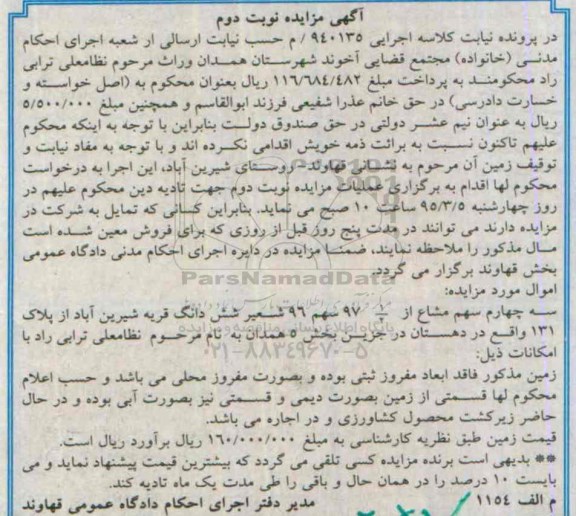 آگهی مزایده نوبت دوم
در پرونده نیابت کلاسه اجرایی ۹۴۰۱۳۵ / م حسب نیابت ارسالی از شعبه اجرای احکام
مدنی (خانواده) مجتمع قضایی آخوند شهرستان همدان وراث مرحوم نظامعلی ترابی
راد محکومند به پرداخت مبلغ ۱۱۶/۶۸۴/۴۸۲ ریال بعنوان محکوم به (اصل خواسته و
خسارت دادرسی) در حق خانم عذرا شفیعی فرزند ابوالقاسم و همچنین مبلغ ۵/۵۰۰/۰۰۰
ریال به عنوان نیم عشر دولتی در حق صندوق دولت بنابراین با توجه به اینکه محکوم
علیهم تاکنون نسبت به برائت ذمه خویش اقدامی نکرده اند و با توجه به مفاد نیابت و
توقیف زمین آن مرحوم به نشانی قهاوند- روستای شیرین آباد، این اجرا به درخواست
محکوم لها اقدام به برگزاری عملیات مزایده نوبت دوم جهت تادیه دین محکوم علیهم در
روز چهارشنبه ۹۵/۳/۵ ساعت ۱۰ صبح می نماید. بنابراین کسانی که تمایل به شرکت در
مزایده دارند می توانند در مدت پنج روز قبل از روزی که برای فروش معین شده است
مال مذکور را ملاحظه نمایند، ضمنا مزایده در دایره اجرای احکام مدنی دادگاه عمومی
بخش قهاوند برگزار می گردد.
ParsNamadData
اموال مورد مزایده:
سه چهارم سهم مشاع از ۹۷ سهم ۹۶ شعیر شش دانگ قریه شیرین آباد از پلاک
پایگاه اطلاع رسانی مناقصه و مزایده
۱۳۱ واقع در دهستان در جزین بخش ۵ همدان به نام مرحوم نظامعلی ترابی راد با
امکانات ذیل:
۰۲۱-۸۸۳۴۹۶۷۰-۵
زمین مذکور فاقد ابعاد مفروز ثبتی بوده و بصورت مفروز محلی می باشد و حسب اعلام
محکوم لها قسمتی از زمین بصورت دیمی و قسمتی نیز بصورت آبی بوده و در حال
حاضر زیرکشت محصول کشاورزی و در اجاره می باشد.
قیمت زمین طبق نظریه کارشناسی به مبلغ ۱۶۰/۰۰۰/۰۰۰ ریال برآورد ریال است.
** بدیهی است برنده مزایده کسی تلقی می گردد که بیشترین قیمت پیشنهاد نماید و می
بایست ۱۰ درصد را در همان حال و باقی را طی مدت یک ماه تادیه کند.
م الف ۱۱۵۴ مدیر دفتر اجرای احکام دادگاه عمومی قهاوند